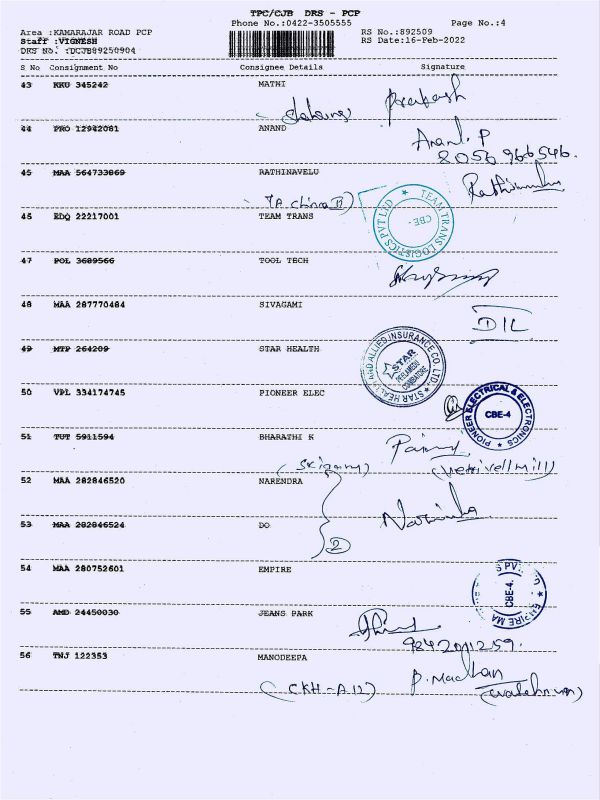 TPC/CJB DRS - PCP
Phone No.:0422-3505555 Page No.:4
Area :KAMARAJAR ROAD PCP RS No.:892509
Staff :VIGNESH RS Date:16-Feb-2022
DRS No. :DCJB89250904
S No Consignment No Consignee Details Signature
43 KKU 345242 MATHI
Prakash
44 PRO 12942081 ANAND
Anand. P
8056 966546.
45 MAA 564733869 RATHINAVELU
TEAM TRANS LOGISTICS PVT LTD
CBE-
45 EDQ 22217001 TEAM TRANS
47 POL 3689566 TOOL TECH
48 MAA 287770484 SIVAGAMI
DIL
49 MTP 264209 STAR HEALTH
STAR HEALTH AND ALLIED INSURANCE CO. LTD.
STAR
PEELAMEDU
COIMBATORE
50 VPL 334174745 PIONEER ELEC
PIONEER ELECTRICAL & ELECTRONICS
CBE-4
51 TUT 5911594 BHARATHI K
52 MAA 282846520 NARENDRA
53 MAA 282846524 DO
2
54 MAA 280752601 EMPIRE
CBE-4.
55 AMD 24450030 JEANS PARK
56 TNJ 122353 MANODEEPA
(CKH-A12)